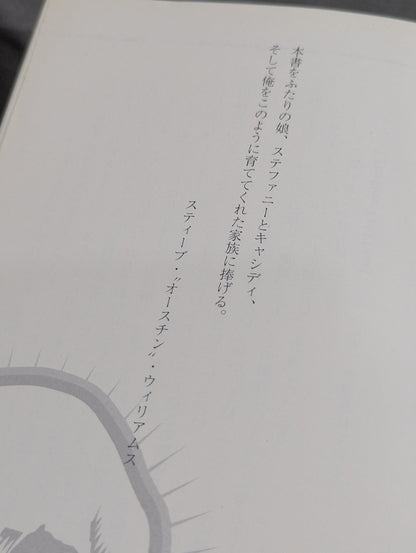 本書をふたりの娘、ステファニーとキャシディ、
そして俺をこのように育ててくれた家族に捧げる。
スティーブ・〝オースチン〟・ウィリアムス